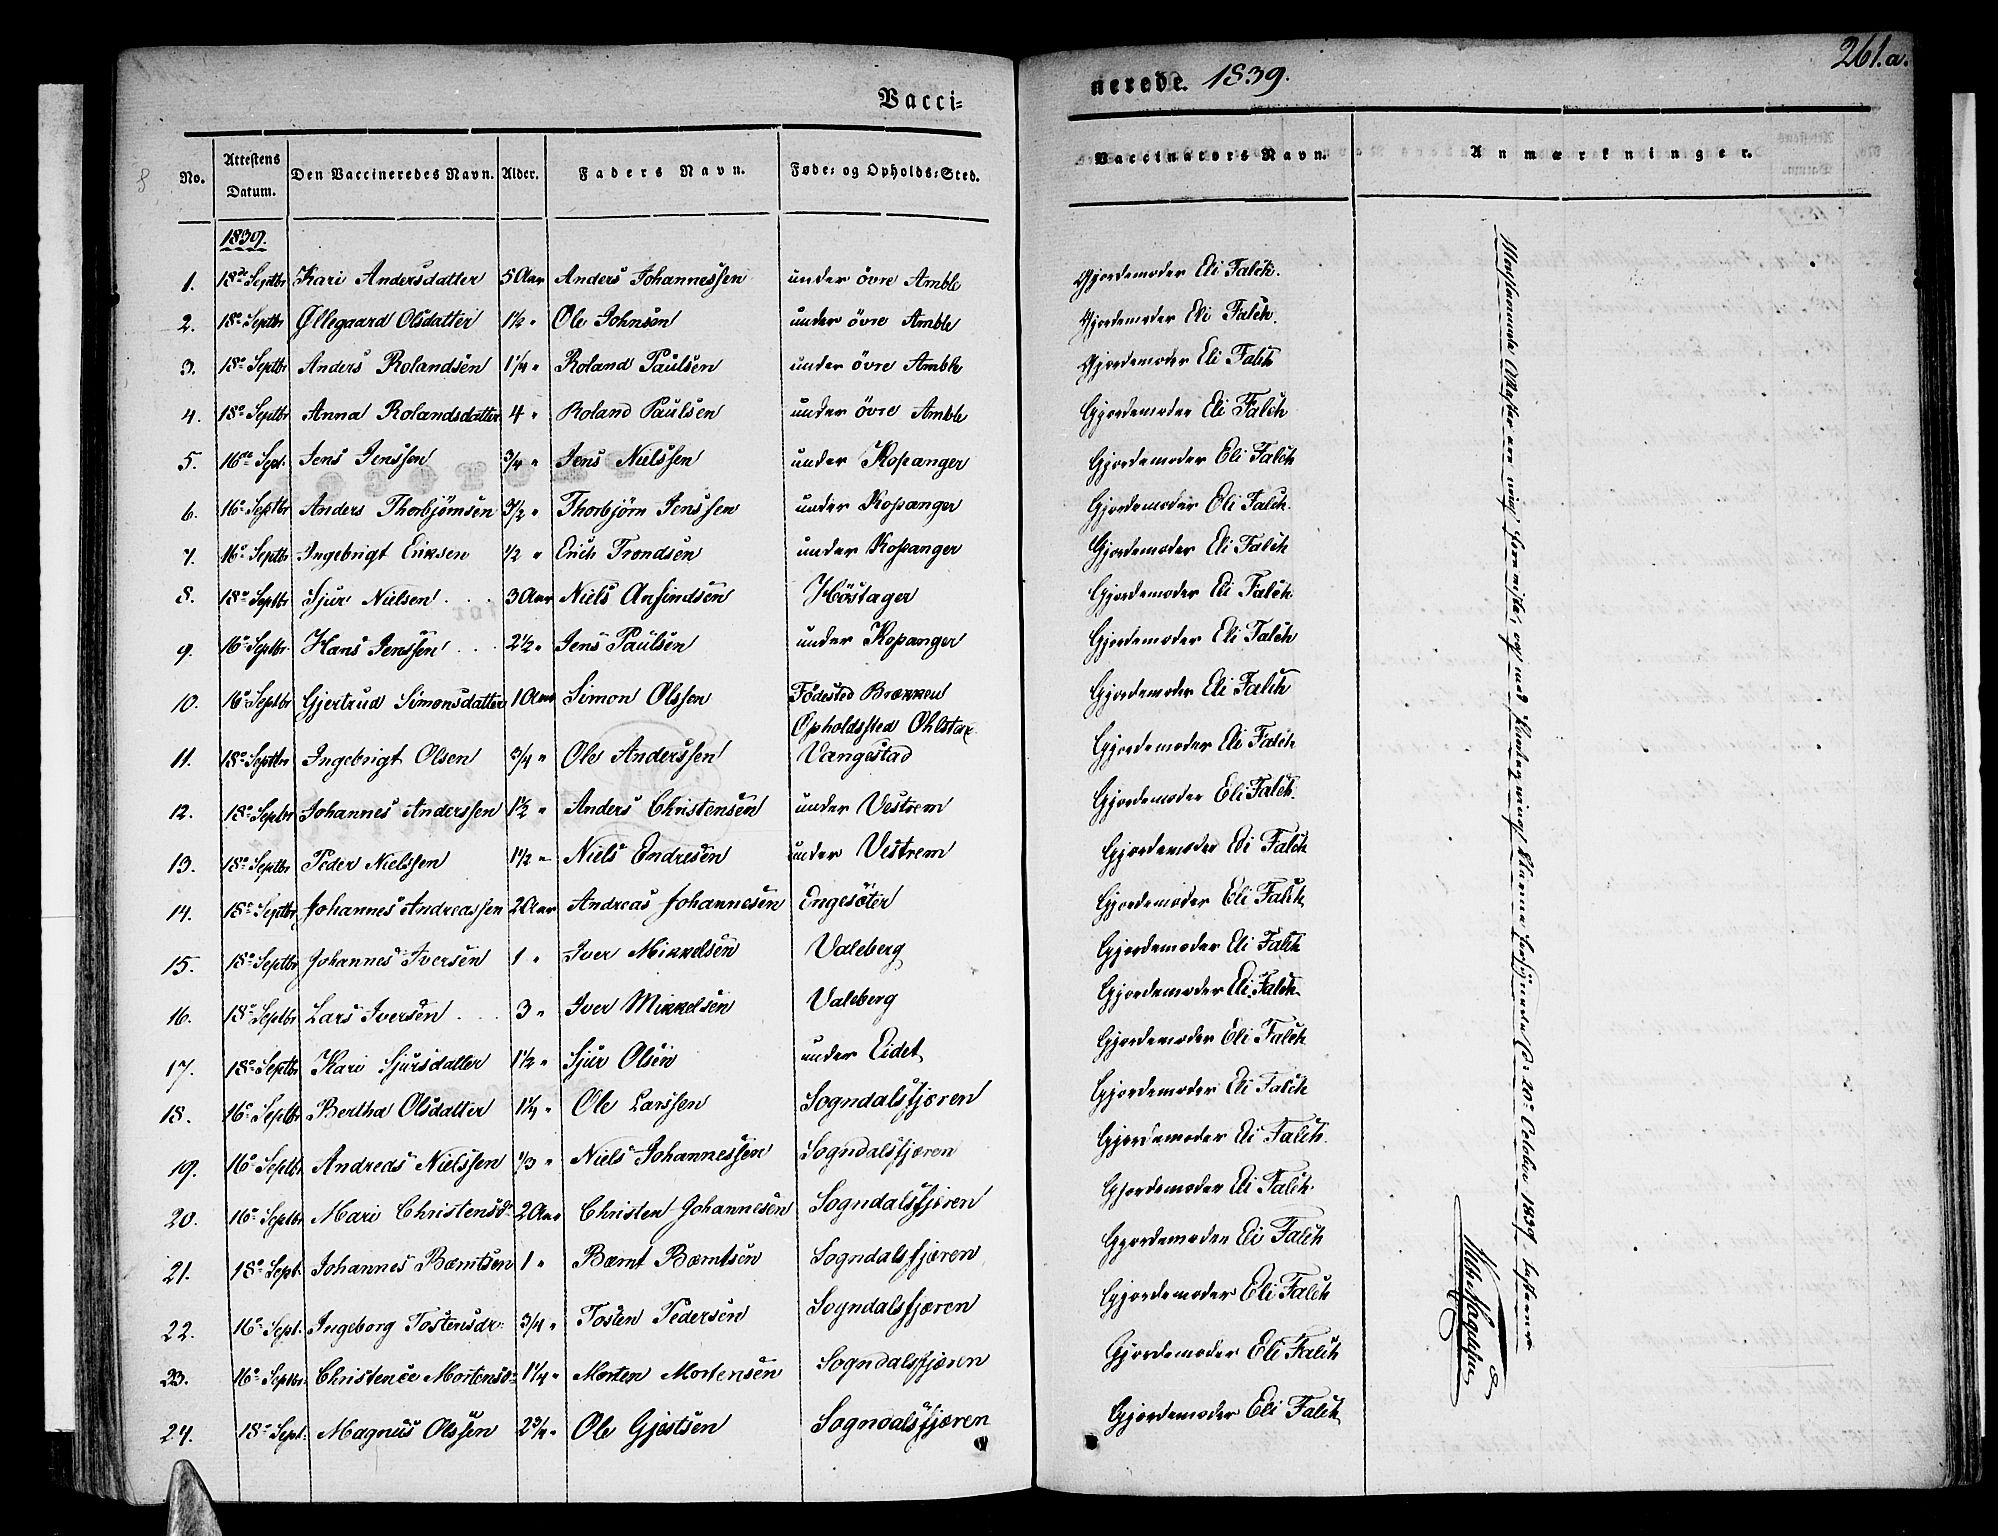 261.a.
Vacci=
nerede. 1839.
No. Attestens Datum. Den Vaccineredes Navn. Alder. Faders Navn. Føde= og Opholds=Sted. Vaccinators Navn. Anmærkninger.
1839.
1. 18de Septbr Kari Andersdatter 5 Aar Anders Johannessen under övre Amble Gjordemoder Eli Falch.
2. 18e Septbr Øllegaard Olsdatter 1½ " Ole Johnsen under övre Amble Gjordemoder Eli Falch.
3. 18e Septbr Anders Rolandsen 1¼ " Roland Paulsen under övre Amble Gjordemoder Eli Falch
4. 18e Septbr Anna Rolandsdatter 4 " Roland Paulsen under övre Amble Gjordemoder Eli Falch
5. 16de Sept. Jens Jenssen 3/4 " Jens Nielssen under Kopanger Gjordemoder Eli Falch
6. 16e Septbr Anders Thorbjörnsen 3/2 " Thorbjörn Jenssen under Kopanger Gjordemoder Eli Falch.
7. 16e Septbr Ingebrigt Eriksen ½ " Erich Trondsen under Kopanger Gjordemoder Eli Falch
8. 18e Septbr Sjur Nielsen 3 Aar Niels Anfindsen Höstager Gjordemoder Eli Falch.
9. 16e Septbr. Hans Jenssen 2½ " Jens Paulsen under Kopanger Gjordemoder Eli Falch
10. 16e Septbr Gjertrud Simonsdatter 1 Aar Simon Olssen Födested Brækken Gjordemoder Eli Falch
Opholdssted Ohlstax
11. 18e Septbr Ingebrigt Olsen 3/4 " Ole Anderssen Vangestad Gjordemoder Eli Falch
12. 18e Septbr Johannes Anderssen 1½ " Anders Christensen under Vestrem Gjordemoder Eli Falch.
13. 18e Septbr Peder Nielssen 1½ " Niels Endresen under Vestrem Gjordemoder Eli Falch
14. 18e Septbr Johannes Andreassen 2 Aar Andreas Johannesen Engesöter Gjordemoder Eli Falch
15. 18e Septbr Johannes Iversen 1 " Iver Mikkelsen Valeberg Gjordemoder Eli Falch
16. 18e Septbr Lars Iversen 3 " Iver Mikkelsen Valeberg Gjordemoder Eli Falch
17. 18e Septbr Kari Sjursdatter 1½ " Sjur Olsen under Eidet Gjordemoder Eli Falch
18. 16e Septbr Bertha Olsdatter 1¼ " Ole Larssen Sogndalsfjæren Gjordemoder Eli Falch
19. 16e Septbr Andreas Nielssen 1/3 " Niels Johannessen Sogndalsfjæren Gjordemoder Eli Falch.
20. 16e Septbr Mari Christensd. 2 Aar Christen Johannesen Sogndalsfjæren Gjordemoder Eli Falch.
21. 18e Sept. Johannes Bærntsen 1 " Bærnt Bærntsen Sogndalsfjæren Gjordemoder Eli Falch
22. 16e Sept. Ingeborg Tostensdr. 3/4 " Tosten Pedersen Sogndalsfjæren Gjordemoder Eli Falch
23. 16e Septbr. Christence Mortensd. 1¼ " Morten Mortensen Sogndalsfjæren Gjordemoder Eli Falch
24. 18e Sept. Magnus Olssen 2¾ " Ole Gjestsen Sogndalsfjæren Gjordemoder Eli Falch
20e October 1839